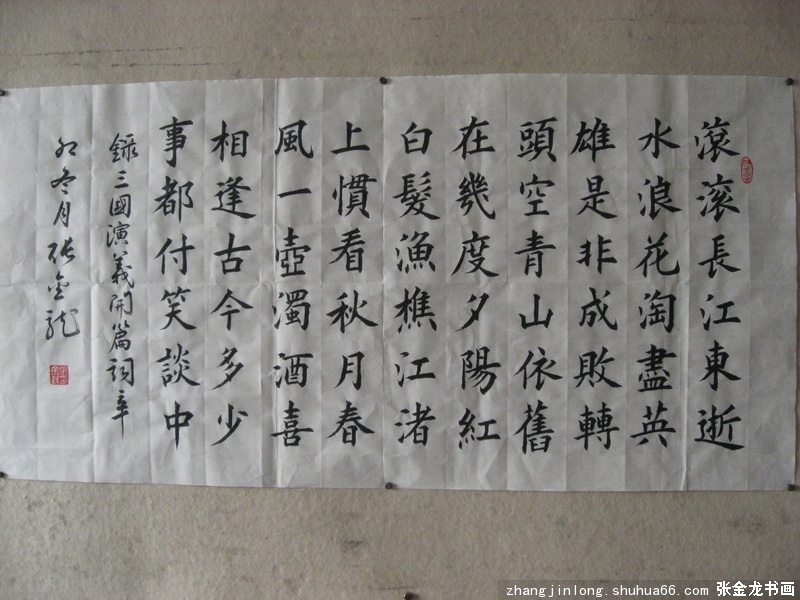 滾滚長江東逝
水浪花淘盡英
雄是非成敗轉
頭空青山依舊
在幾度夕陽紅
白髮漁樵江渚
上慣看秋月春
風一壺濁酒喜
相逢古今多少
事都付笑談中
錄三國演義開篇詞章
冬月張金龍
zhangjinlong.shuhua66.com 张金龙书画